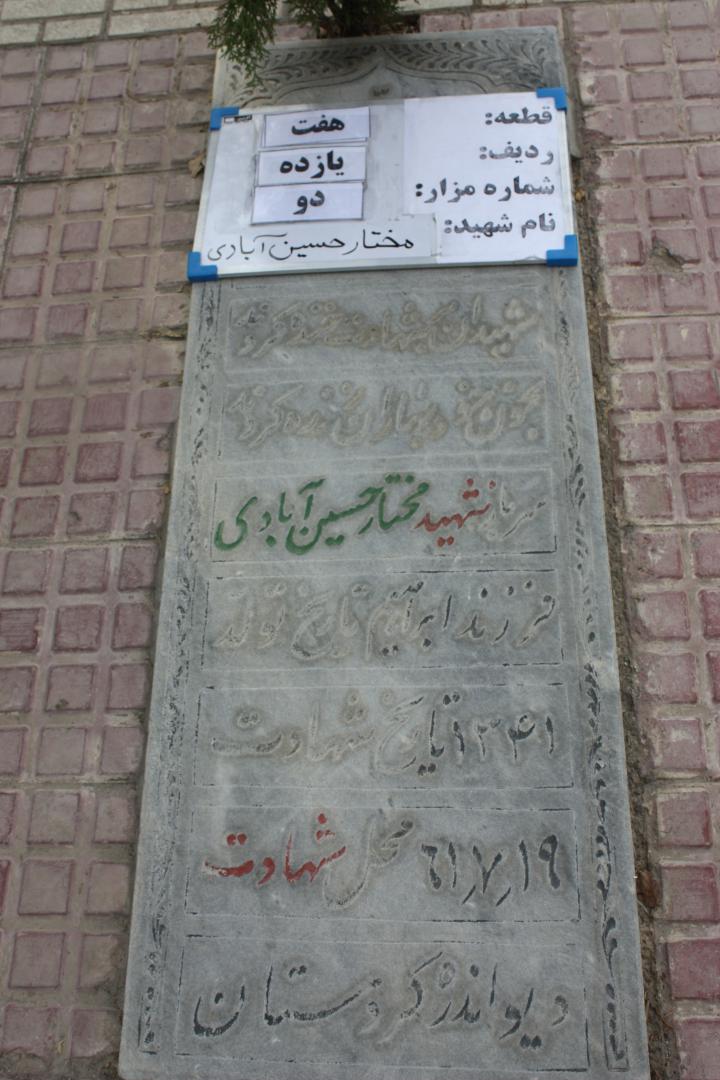 قطعه: هفت
ردیف: یازده
شماره مزار: دو
نام شهید: مختار حسین آبادی
شهیدان
بخون خود بهاران زنده کردند
سرباز شهید مختار حسین آبادی
فرزند ابراهیم تاریخ تولد
۱۳۴۱ تاریخ شهادت
۶۱٫۷٫۱۹ محل شهادت
دیواندره کردستان